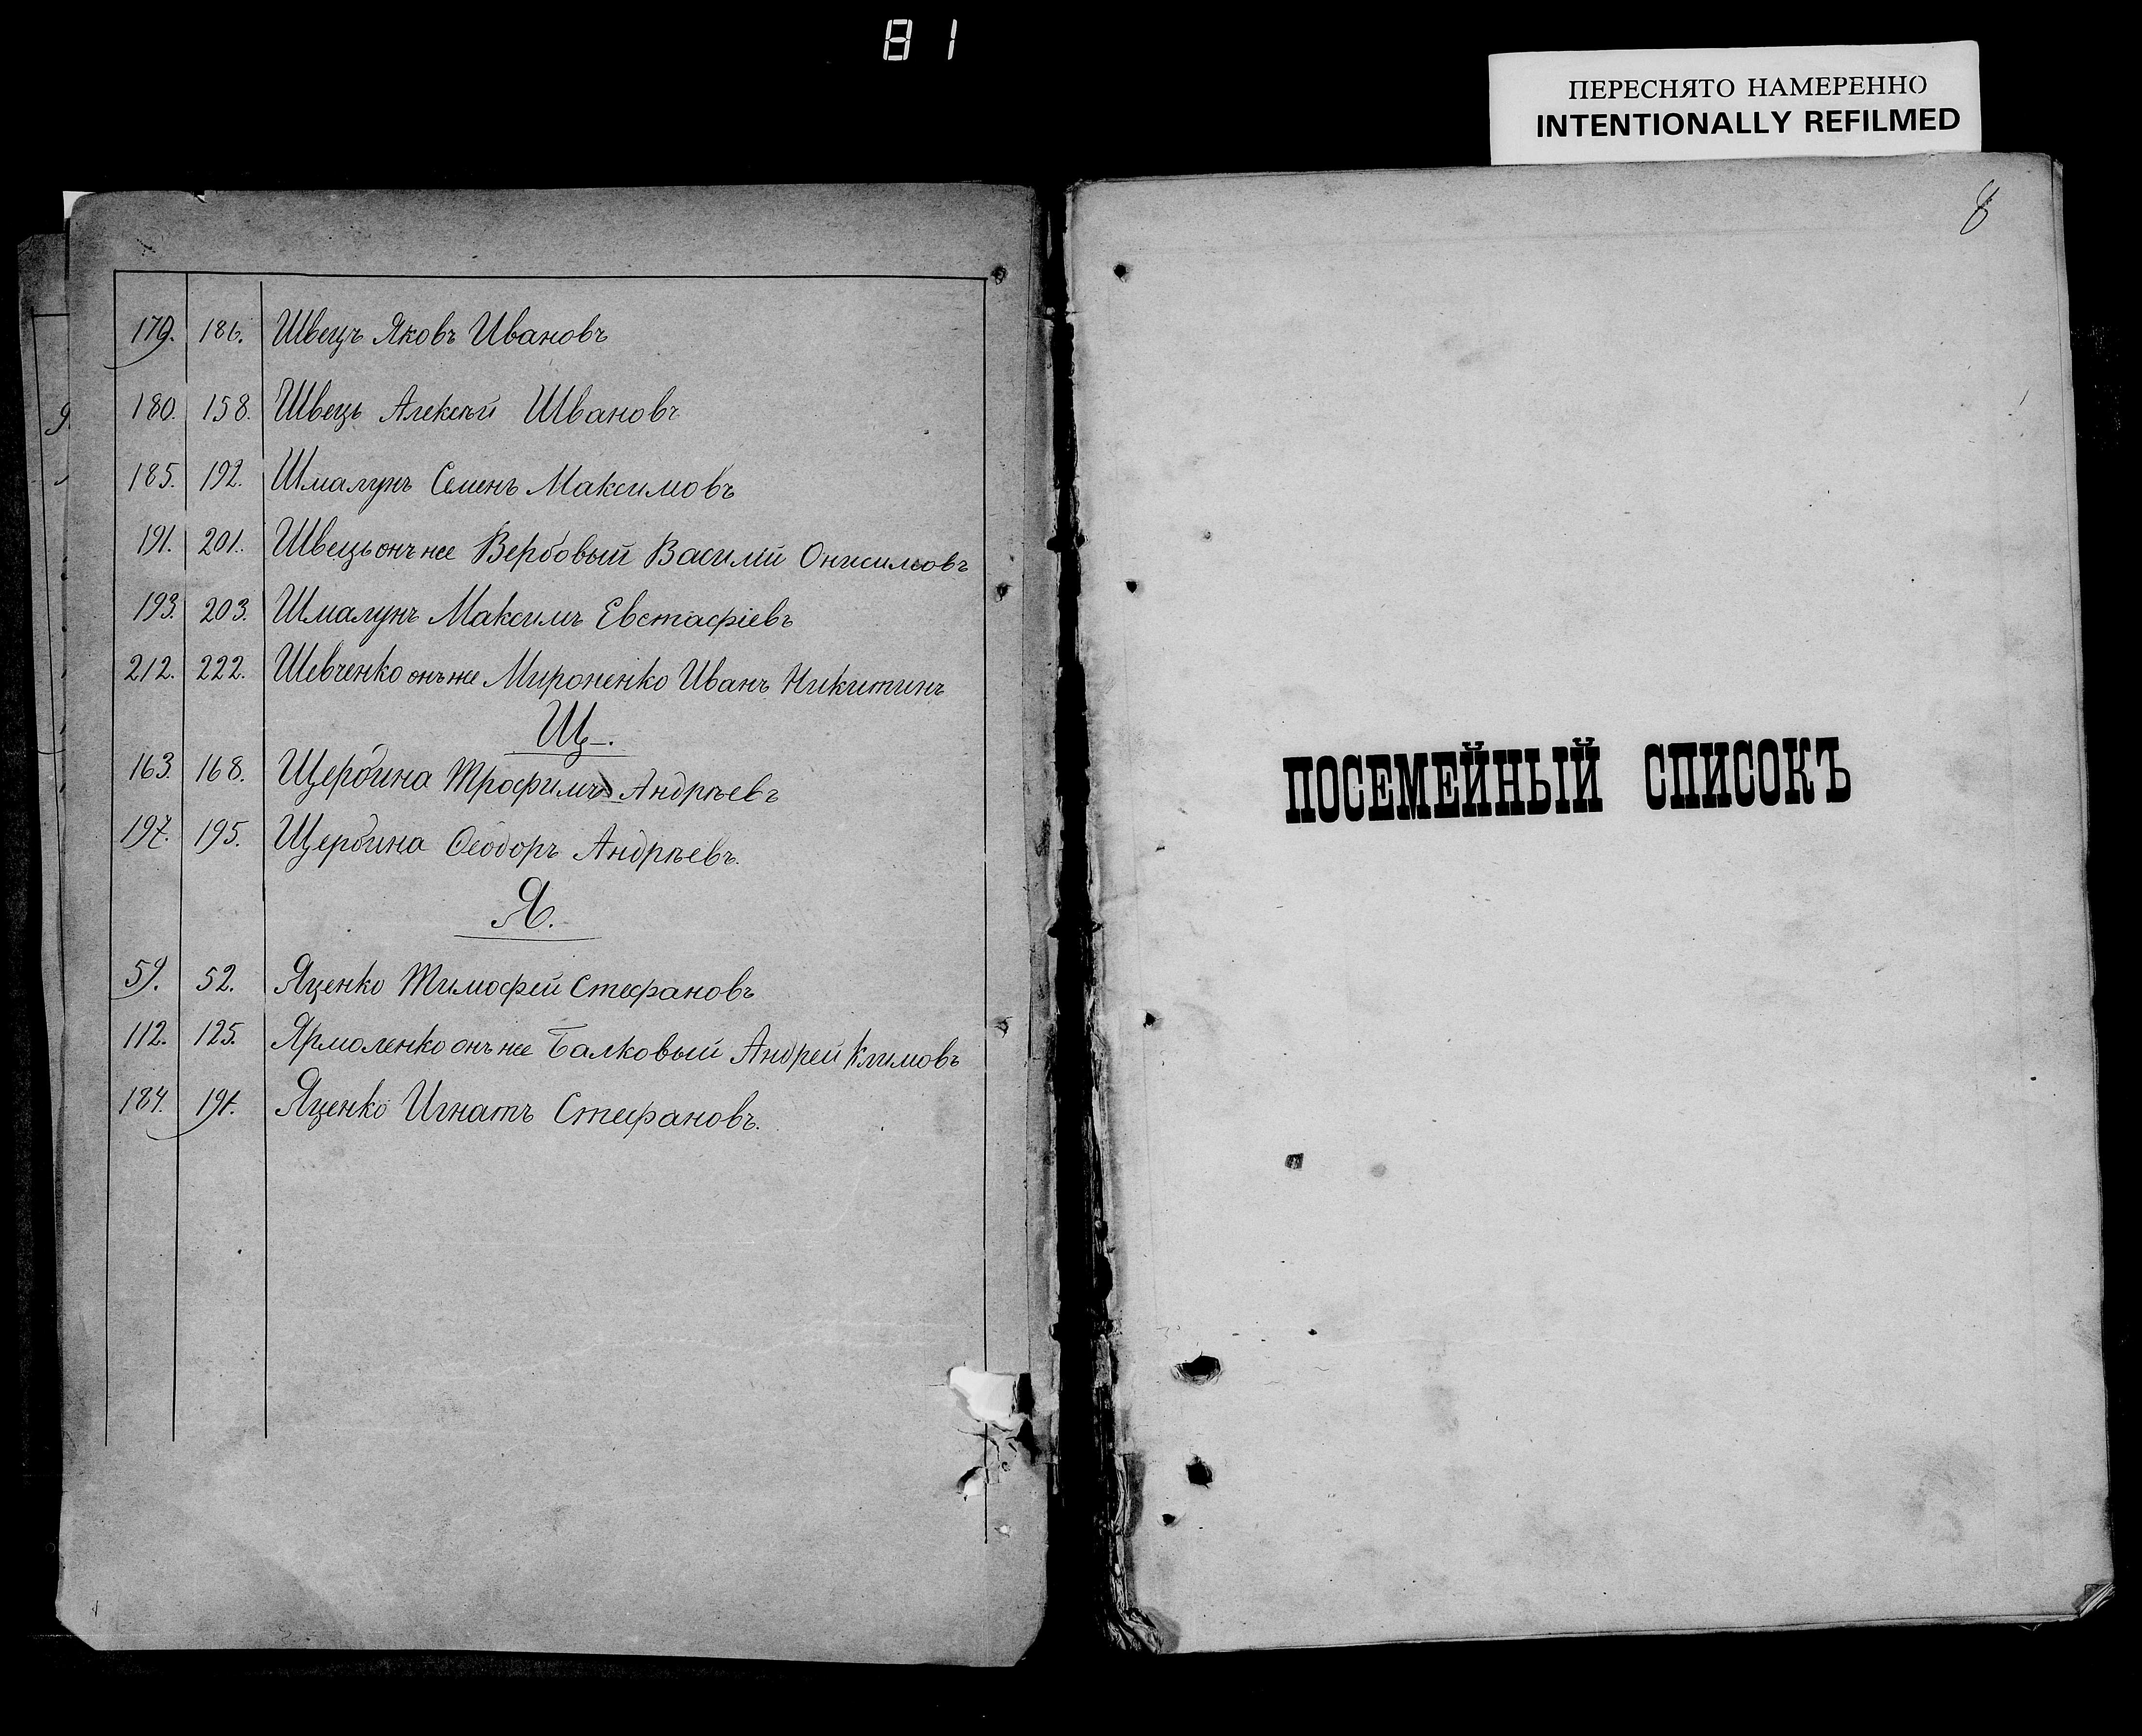 81
ПЕРЕСНЯТО НАМЕРЕННО
INTENTIONALLY REFILMED
179. 186. Швецъ Яковъ Ивановъ
180. 158. Швецъ Алексѣй Ивановъ
185. 192. Шмалунъ Семенъ Максимовъ
191. 201. Швецъ онъ же Вербовый Василій Онисимовъ
193. 203. Шмалунъ Максимъ Евстафіевъ
212. 222. Шевченко онъ же Мироненко Иванъ Никитинъ
Щ.
163. 168. Щербина Трофимъ Андрѣевъ
197. 195. Щербина Ѳеодоръ Андрѣевъ.
Я.
59. 52. Яценко Тимофей Стефановъ
112. 125. Ярмоленко онъ же Балковый Андрей Климовъ
184. 191. Яценко Игнатъ Стефановъ.
8
ПОСЕМЕЙНЫЙ СПИСОКЪ